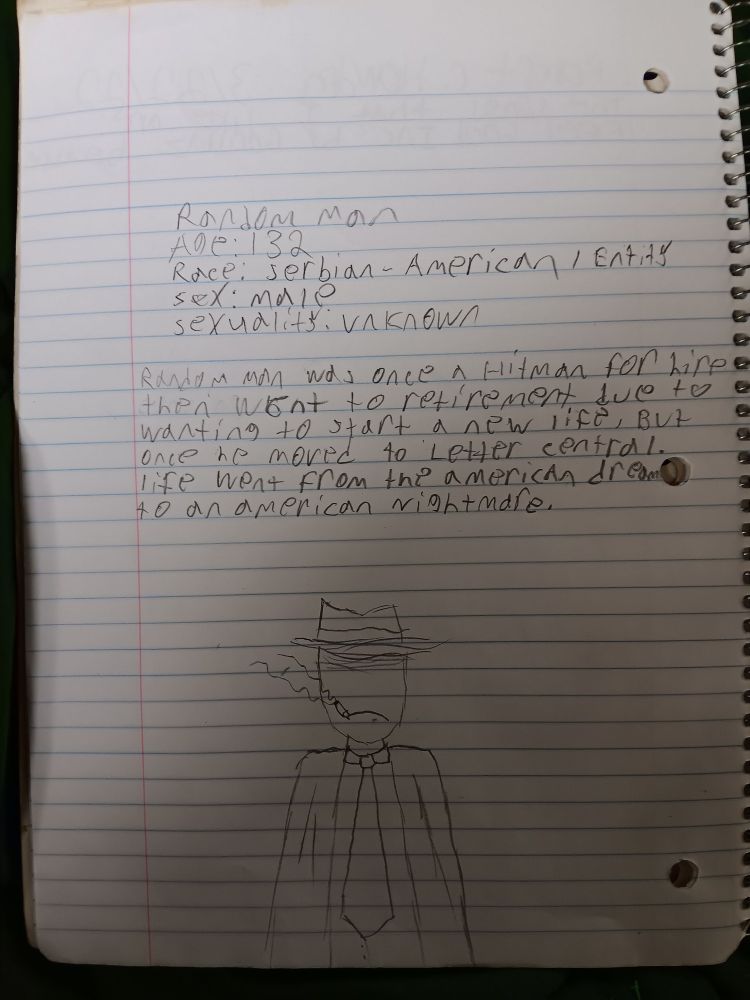 Random man
Age: 132
Race: serbian-American / Entity
sex: male
sexuality: unknown
Random man was once a Hitman for hire
then went to retirement due to
wanting to start a new life, But
once he moved to Letter central.
life went from the american dream
to an american nightmare.